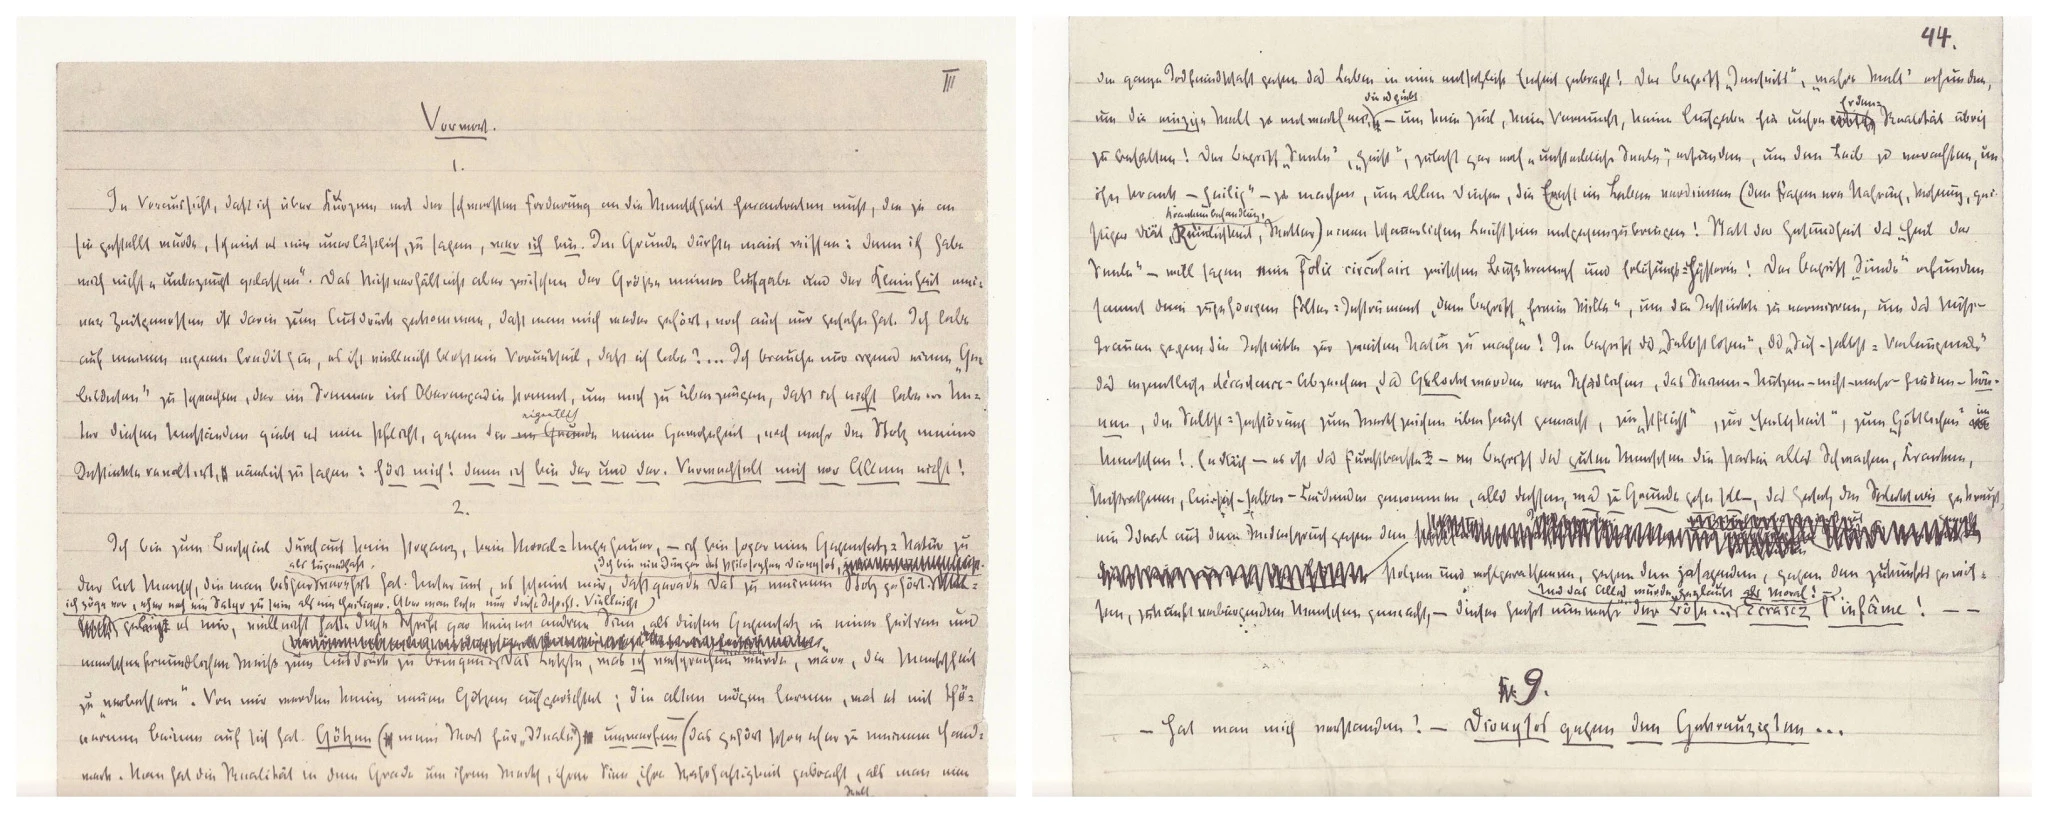 III
Vorwort.
1.
In Voraussicht, daß ich über Kurzem mit der schwersten Forderung an die Menschheit herantreten muß, die je an
sie gestellt wurde, scheint es mir unerläßlich, zu sagen, wer ich bin. Im Grunde dürfte man's wissen: denn ich habe
mich nicht „unbezeugt gelassen“. Das Mißverhältniß aber zwischen der Größe meiner Aufgabe und der Kleinheit mei-
ner Zeitgenossen ist darin zum Ausdruck gekommen, daß man mich weder gehört, noch auch nur gesehn hat. Ich lebe
auf meinen eignen Credit hin, es ist vielleicht bloß ein Vorurtheil, daß ich lebe?... Ich brauche nur irgend einen „Ge-
bildeten“ zu sprechen, der im Sommer ins Oberengadin kommt, um mich zu überzeugen, daß ich nicht lebe... Un-
eigentlich
ter diesen Umständen giebt es eine Pflicht, gegen die im Grunde meine Gewohnheit, noch mehr der Stolz meiner
Instinkte revoltirt, nämlich zu sagen: Hört mich! denn ich bin der und der. Verwechselt mich vor Allem nicht!
2.
Ich bin zum Beispiel durchaus kein Popanz, kein Moral-Ungeheuer, – ich bin sogar eine Gegensatz-Natur zu
als tugendhaft
Ich bin ein Jünger des Philosophen Dionysos,
der Art Mensch, die man bisher verehrt hat. Unter uns, es scheint mir, daß gerade Das zu meinem Stolz gehört.
ich zöge vor, eher noch ein Satyr zu sein als ein Heiliger. Aber man lese nur diese Schrift. Vielleicht
gelang es mir, vielleicht hatte diese Schrift gar keinen andren Sinn, als diesen Gegensatz in einer heitren und
menschenfreundlichen Weise zum Ausdruck zu bringen. Das Letzte, was ich versprechen würde, wäre, die Menschheit
zu „verbessern“. Von mir werden keine neuen Götzen aufgerichtet; die alten mögen lernen, was es mit thö-
nernen Beinen auf sich hat. Götzen (mein Wort für „Ideale“) umwerfen (das gehört schon eher zu meinem Hand-
werk. Man hat die Realität in dem Grade um ihren Werth, ihren Sinn, ihre Wahrhaftigkeit gebracht, als man eine
Welt
44.
die ganze Todfeindschaft gegen das Leben in eine entsetzliche Einheit gebracht! Der Begriff „Jenseits“, „wahre Welt“ erfunden,
die es giebt
Erden-
um die einzige Welt zu entwerthen, – um kein Ziel, keine Vernunft, keine Aufgabe für unsre Realität übrig
zu behalten! Der Begriff „Seele“, „Geist“, zuletzt gar noch „unsterbliche Seele“, erfunden, um den Leib zu verachten, um
ihn krank – „heilig“ – zu machen, um allen Dingen, die Ernst im Leben verdienen (den Fragen von Nahrung, Wohnung, gei-
Krankenbehandlung,
stiger Diät, Reinlichkeit, Wetter) einen schauerlichen Leichtsinn entgegenzubringen! Statt der Gesundheit das „Heil der
Seele“ – will sagen eine folie circulaire zwischen Bußkrampf und Erlösungs-Hysterie! Der Begriff „Sünde“ erfunden
sammt dem zugehörigen Folter-Instrument, dem Begriff „freier Wille“, um die Instinkte zu verwirren, um das Miß-
trauen gegen die Instinkte zur zweiten Natur zu machen! Im Begriff des „Selbstlosen“, des „Sich-selbst-Verleugnenden“
das eigentliche décadence-Abzeichen, das Gelocktwerden vom Schädlichen, das Seinen-Nutzen-nicht-mehr-finden-kön-
nen, die Selbst-Zerstörung zum Werthzeichen überhaupt gemacht, zur „Pflicht“, zur „Heiligkeit“, zum „Göttlichen“ im
Menschen! Endlich – es ist das Furchtbarste – im Begriff des guten Menschen die Partei alles Schwachen, Kranken,
Mißrathnen, An-sich-selber-Leidenden genommen, alles dessen, was zu Grunde gehn soll –, das Gesetz der Selektion gekreuzt,
ein Ideal aus dem Widerspruch gegen den
stolzen und wohlgerathenen, gegen den jasagenden, gegen den zukunftsgewis-
Und das Alles wurde geglaubt als Moral!
sen, zukunftverbürgenden Menschen gemacht – dieser heißt nunmehr der Böse... Ecrasez l'infâme! – –
9.
– Hat man mich verstanden? – Dionysos gegen den Gekreuzigten...